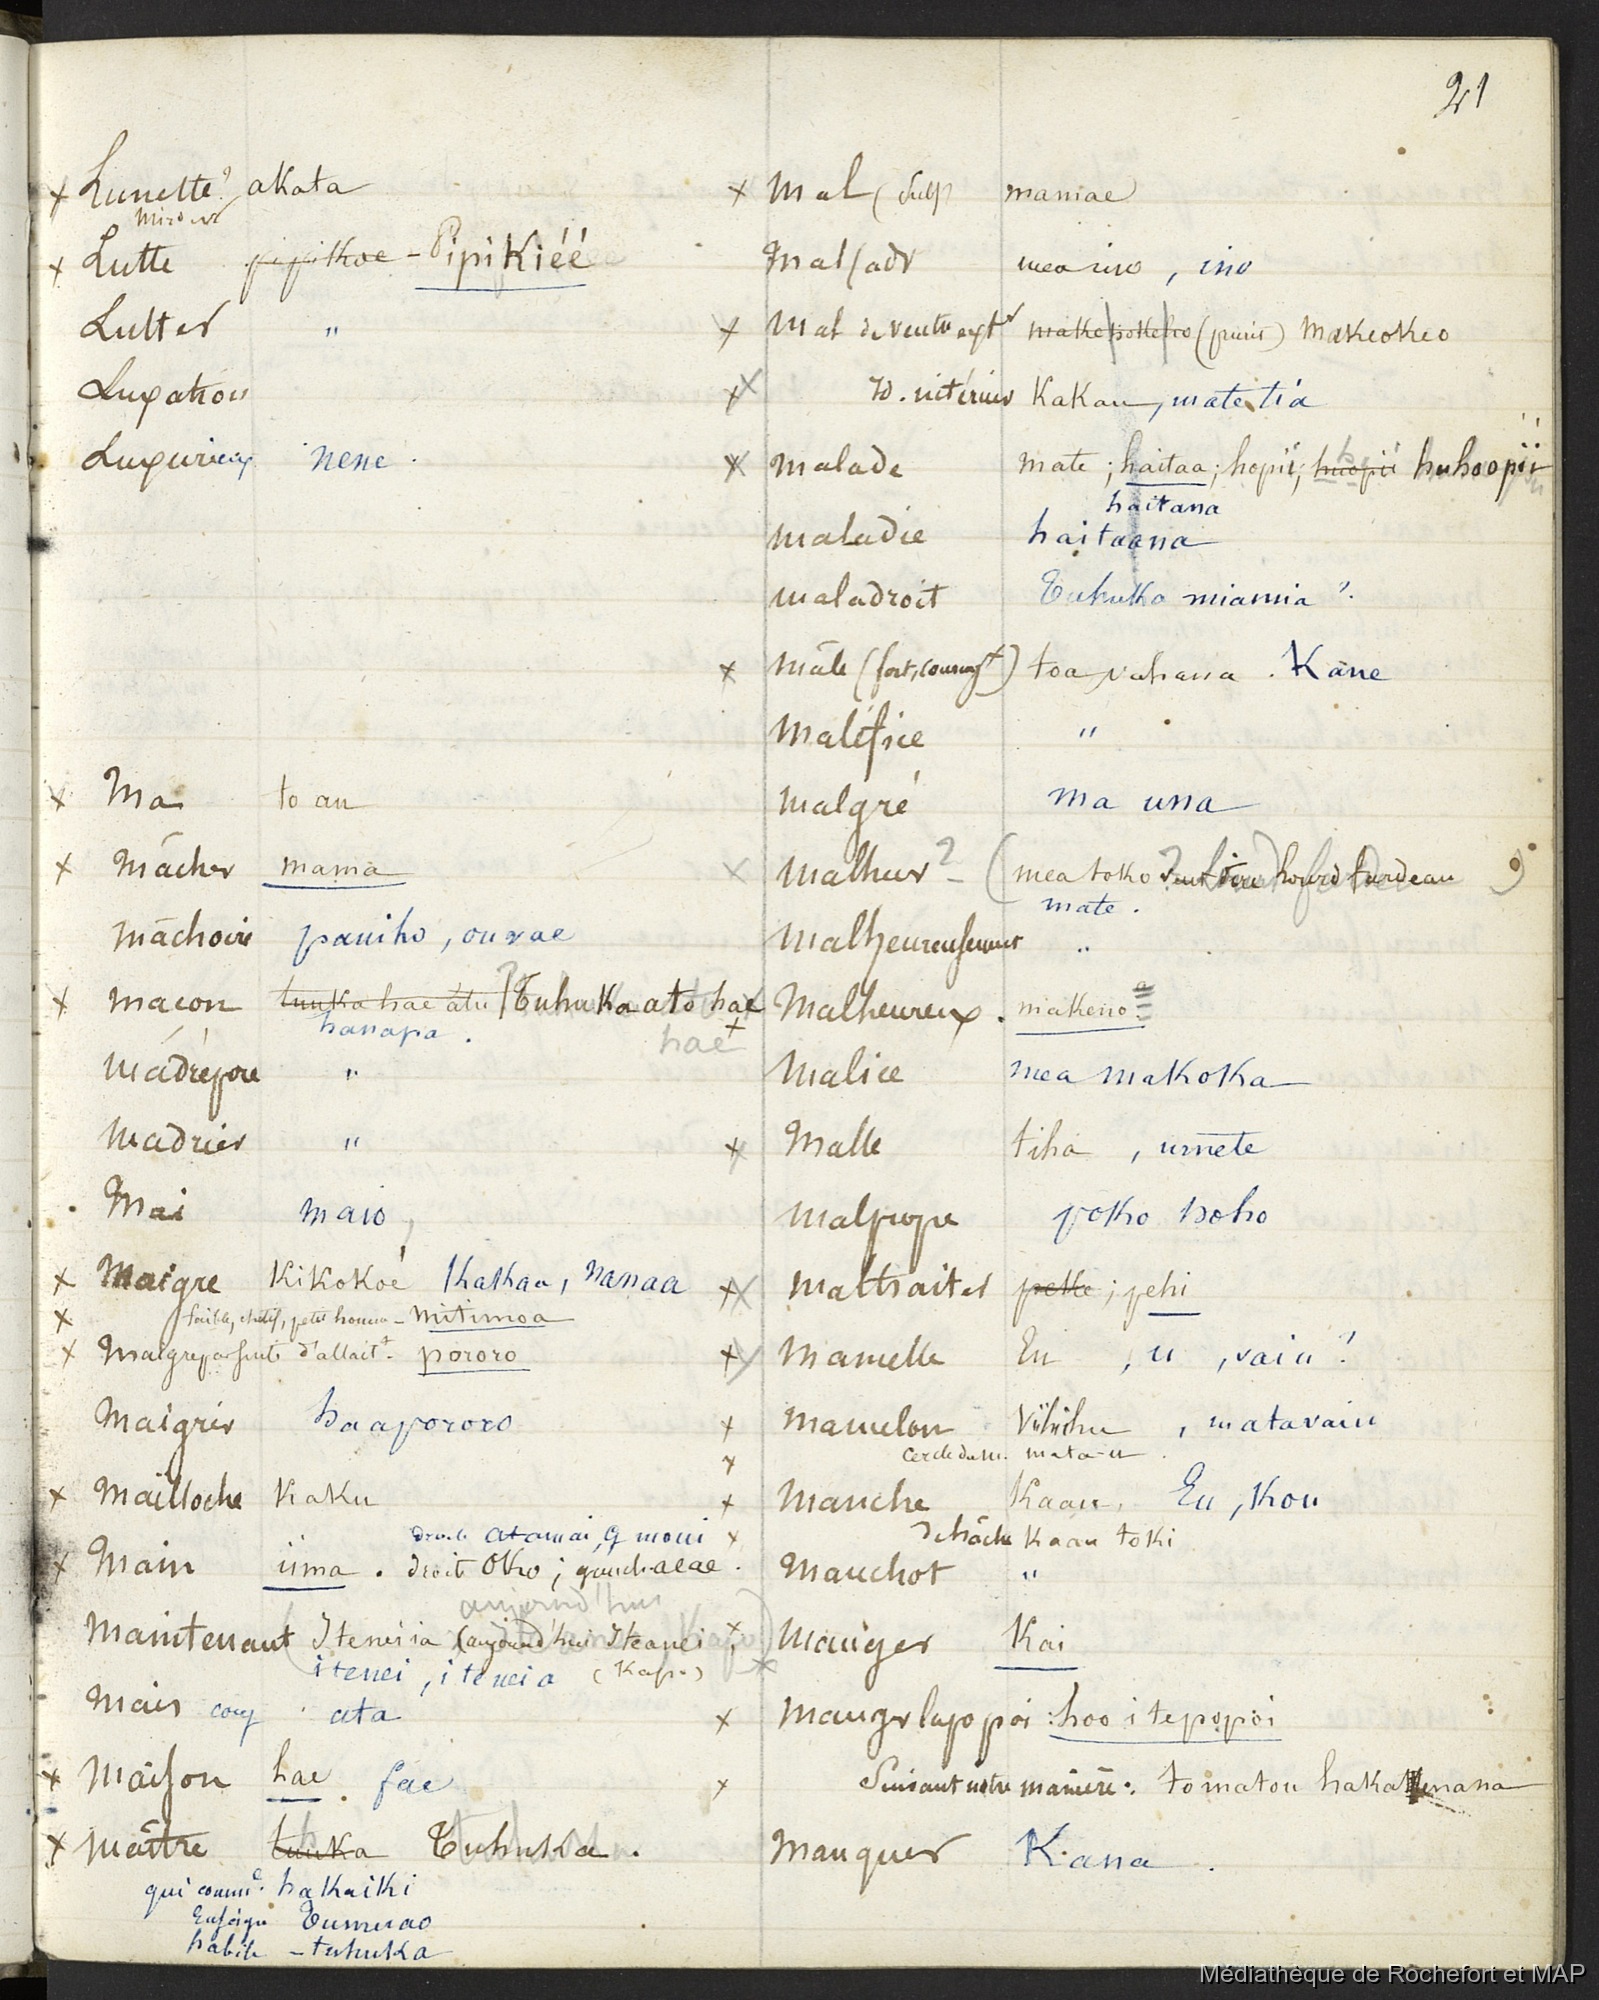 21
x Lunette? akata
Miroir
x Lutte pipikoe - Pipikiéé
Lutter "
Luxation
Luxurieux nene
x Ma to au
x mâcher mama
mâchoire pauiho, ouvae
x macon tuuka hae atu Tuhuka ato hae
hanapa. hae
madrépore "
madrier "
Mai maio
x Maigre kikokoé kakaa, nanaa
x faible, chétif, petit homme - mitimoa
x Maigre par suite d'allait.t - pororo
Maigrir haapororo
x Mailloche kaku
droite atamai, g moui
x Main iima . droite Oko ; gauche aeae .
aujourd'hui
Maintenant Iteneiia (aujourd'hui Iteanei
itenei, i teneia (Kapo)
Mais conj ata
x Maison hae . fae
x maître tuuka Tuhuka .
qui comm.e hakaiki
Enseigne Tumuao
habile - tuhuka
x mal (subs maniae
Mal (adv mea ino , ino
x Mal de ventre ext.r (purir) Makeokeo
x id. intérieur kakau, mate tia
x malade mate ; haitaa ; hopii ; huhoopii
haitana
maladie haitaana
maladroit Tuhuka miamia ?
x mâle (fort, courag.x) toa, vahana . Kane
Maléfice "
malgré ma una
x malheur ? - (mea toko ? veut dire lourd fardeau )
mate .
malheureusement "
Malheureux . makeno ?
Malice mea makoka
x Malle tiha , umete
malpropre poko hoho
x maltraiter peke ; pehi
x Mamelle Eu , u , vaiu ?
x mamelon , matavaiu
x cercle du m. mata-u
x manche Kaau, Eu, kou
x de hâche kaau toki
manchot "
x Manger Kai
x manger la popoi : hoo i te popoi
x Suivant notre manière : to matou hakatunana
manquer Kana .
Médiathèque de Rochefort et MAP